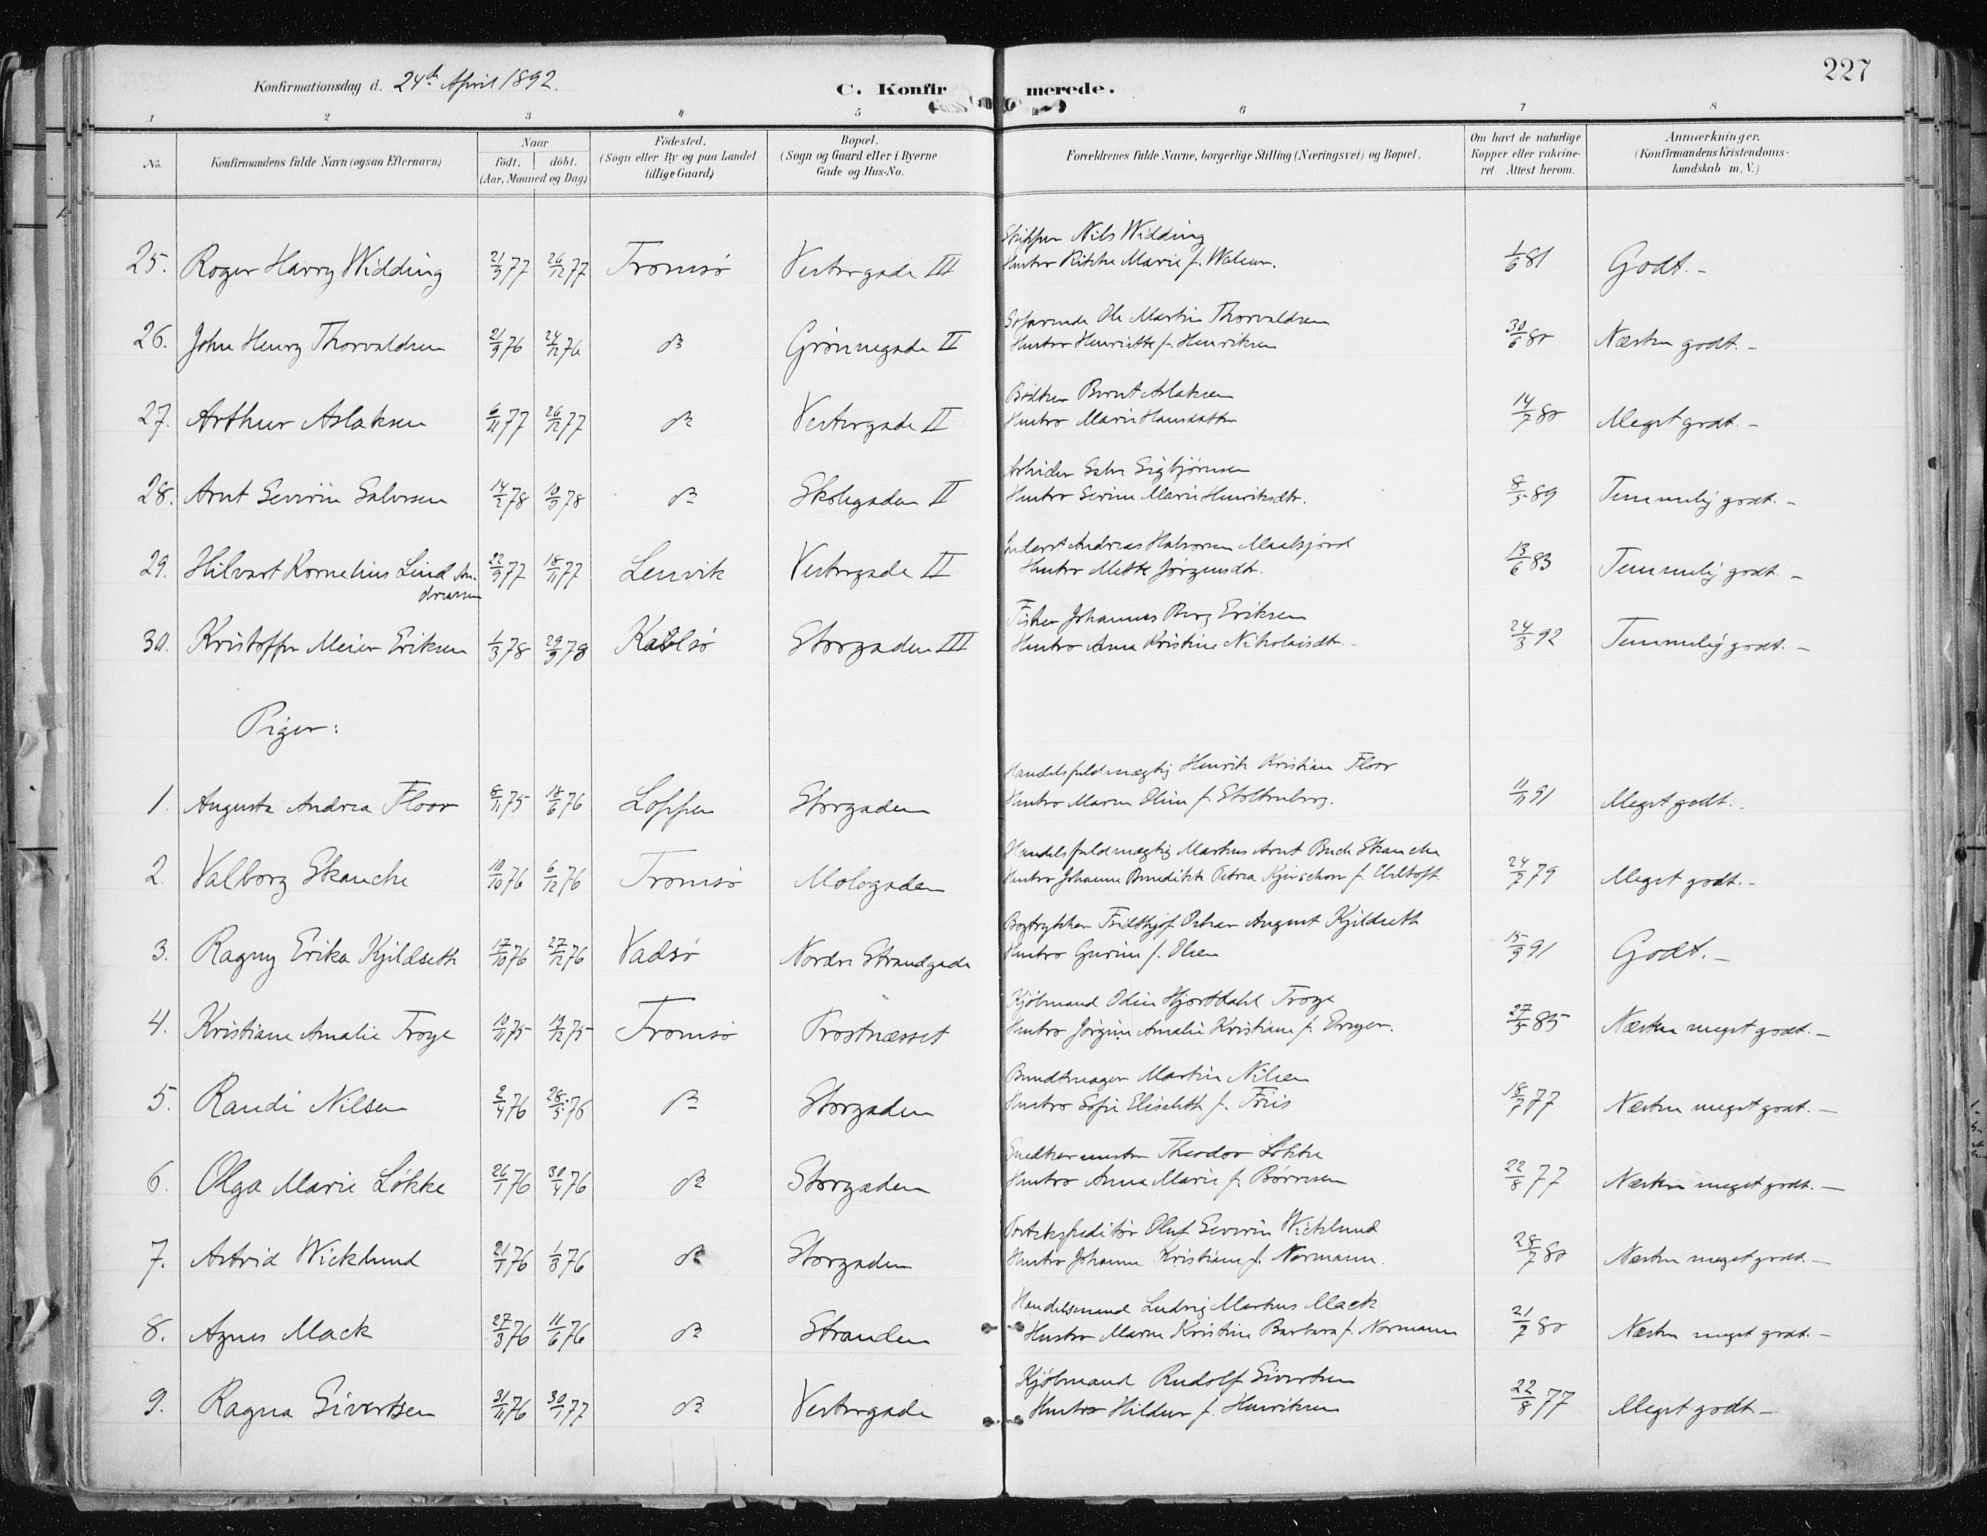 227
Konfirmationsdag d. 24de April 1892.
C. Konfirmerede.
1 2 3 4 5 6 7 8
No. Konfirmandens fulde Navn (ogsaa Efternavn) Naar födt. döbt. (Aar, Maaned og Dag) Födested. (Sogn eller By og paa Landet tillige Gaard) Bopæl. (Sogn og Gaard eller i Byerne Gade og Hus-No. Forældrenes fulde Navne, borgerlige Stilling (Næringsvei) og Bopæl. Om havt de naturlige Kopper eller vakcineret. Attest herom. Anmærkninger. (Konfirmandens Kristendomskundskab m. V.)
Skipper Nils Widding
25. Roger Harry Widding 21/9 77 26/12 77 Tromsø Vestergade III Hustro Rikke Marie f. 1/6 81 Godt. -
Ole Martin Thorvaldsen
26. John Henry Thorvaldsen 21/9 76 24/12 76 do Grønnegade II Hustro Henriette f. Henriksen 30/6 80 Næsten godt. -
Bødker Bernt Aslaksen
27. Arthur Aslaksen 6/11 77 26/12 77 do Vestergade II Hustro Marie Hansdatter 14/7 80 Meget godt. -
Arbeider Sigbjørnsen
28. Arnt Severin Salvesen 14/2 78 10/3 78 do Skolegaden II Hustro Serine Marie Henriksdtr. 8/5 89 Temmelig godt. -
Inderst Andreas Halvorsen Maalsfjord
29. Hilvart Kornelius Lind An- 22/9 77 18/11 77 Lenvik Vestergade II Hustro Mette Jørgensdt. 13/6 83 Temmelig godt. -
dreassen
Fisker Johannes Berg Eriksen
30. Kristoffer Meier Eriksen 1/3 78 29/9 78 Karlsø Storgaden III Hustro Anna Kristine Nikolaisdt. 24/3 92 Temmelig godt. -
Piger:
Handelsfuldmægtig Henrik Kristian Floor
1. Augusta Andrea Floor 8/11 75 18/6 76 Loppen Storgaden Hustro Maren Oline f. Stoltenberg. 11/11 91 Meget godt. -
Handelsfuldmægtig Markus Arnt Buck Skancke
2. Valborg Skancke 10/10 76 6/12 76 Tromsø Mologaden Hustro Johanne Benedikte Petrea Kjerschow f. 24/7 79 Meget godt. -
Bogtrykker Fridthjof Oskar August Kjeldseth
3. Ragny Erika Kjildseth 17/10 76 27/12 76 Vadsø Nordre Strandgade Hustro Gurine f. Olsen 15/9 91 Godt. -
Kjøbmand Odin Hjortdahl Troye
4. Kristiane Amalie Troye 10/11 75 19/12 75 Tromsø Prostnesset Hustro Jørgine Amalie Kristiane f. Dreyer. 27/5 85 Næsten meget godt. -
Bundtmager Martin Nilsen
5. Randi Nilsen 2/4 76 28/5 76 do Storgaden Hustro Sofie Elisabeth f. Friis 18/7 77 Næsten meget godt. -
Snedkermester Theodor Løkke
6. Olga Marie Løkke 26/1 76 30/4 76 do Storgaden Hustro Anna Marie f. Børresen 22/8 77 Næsten meget godt. -
Postekspeditør Oluf Severin Wicklund
7. Astrid Wicklund 21/1 76 1/3 76 do Storgaden Hustro Johanne Kristiane f. Normann. 28/7 80 Næsten meget godt. -
Handelsmand Ludvig Markus Mack
8. Agnes Mack 27/3 76 11/6 76 do Stranden Hustro Maren Kristine Barbara f. Normann 21/7 80 Næsten meget godt. -
Kjøbmand Rudolf Sivertsen
9. Ragna Sivertsen 31/11 76 30/1 77 do Vestergade Hustro Hildur f. Henriksen 22/8 77 Meget godt. -